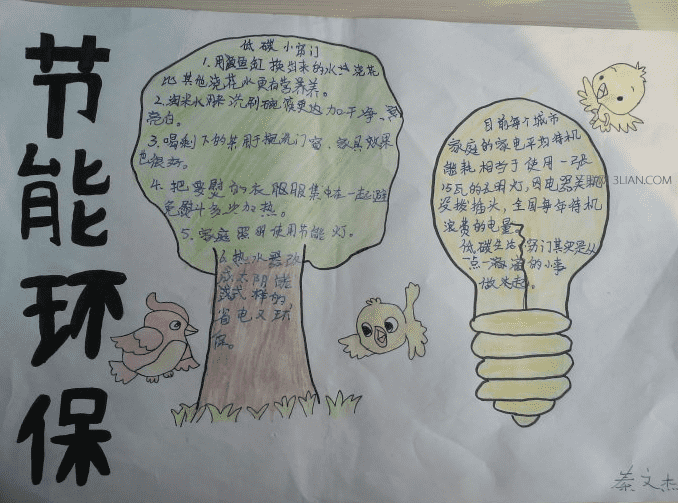 节能环保
低碳小窍门
1.用鱼缸换出来的水浇花
比其他浇花水更有营养。
2.淘米水用来洗刷碗筷更加干净
亮白。
3.喝剩下的茶用于擦洗门窗、家具效果
也很好。
4.把要熨的衣服集中在一起避
免熨斗多次加热。
5.家庭照明使用节能灯。
6.热水器改
成太阳能
省电又环
保。
目前每个城市
家庭的家电平均待机
能耗相当于使用一
15瓦的灯,因电器关
没拨插头,全国每年待机
浪费的电量
低碳生活窍门其实是从
一点一滴的小事
做起。
3LIAN.COM
文杰